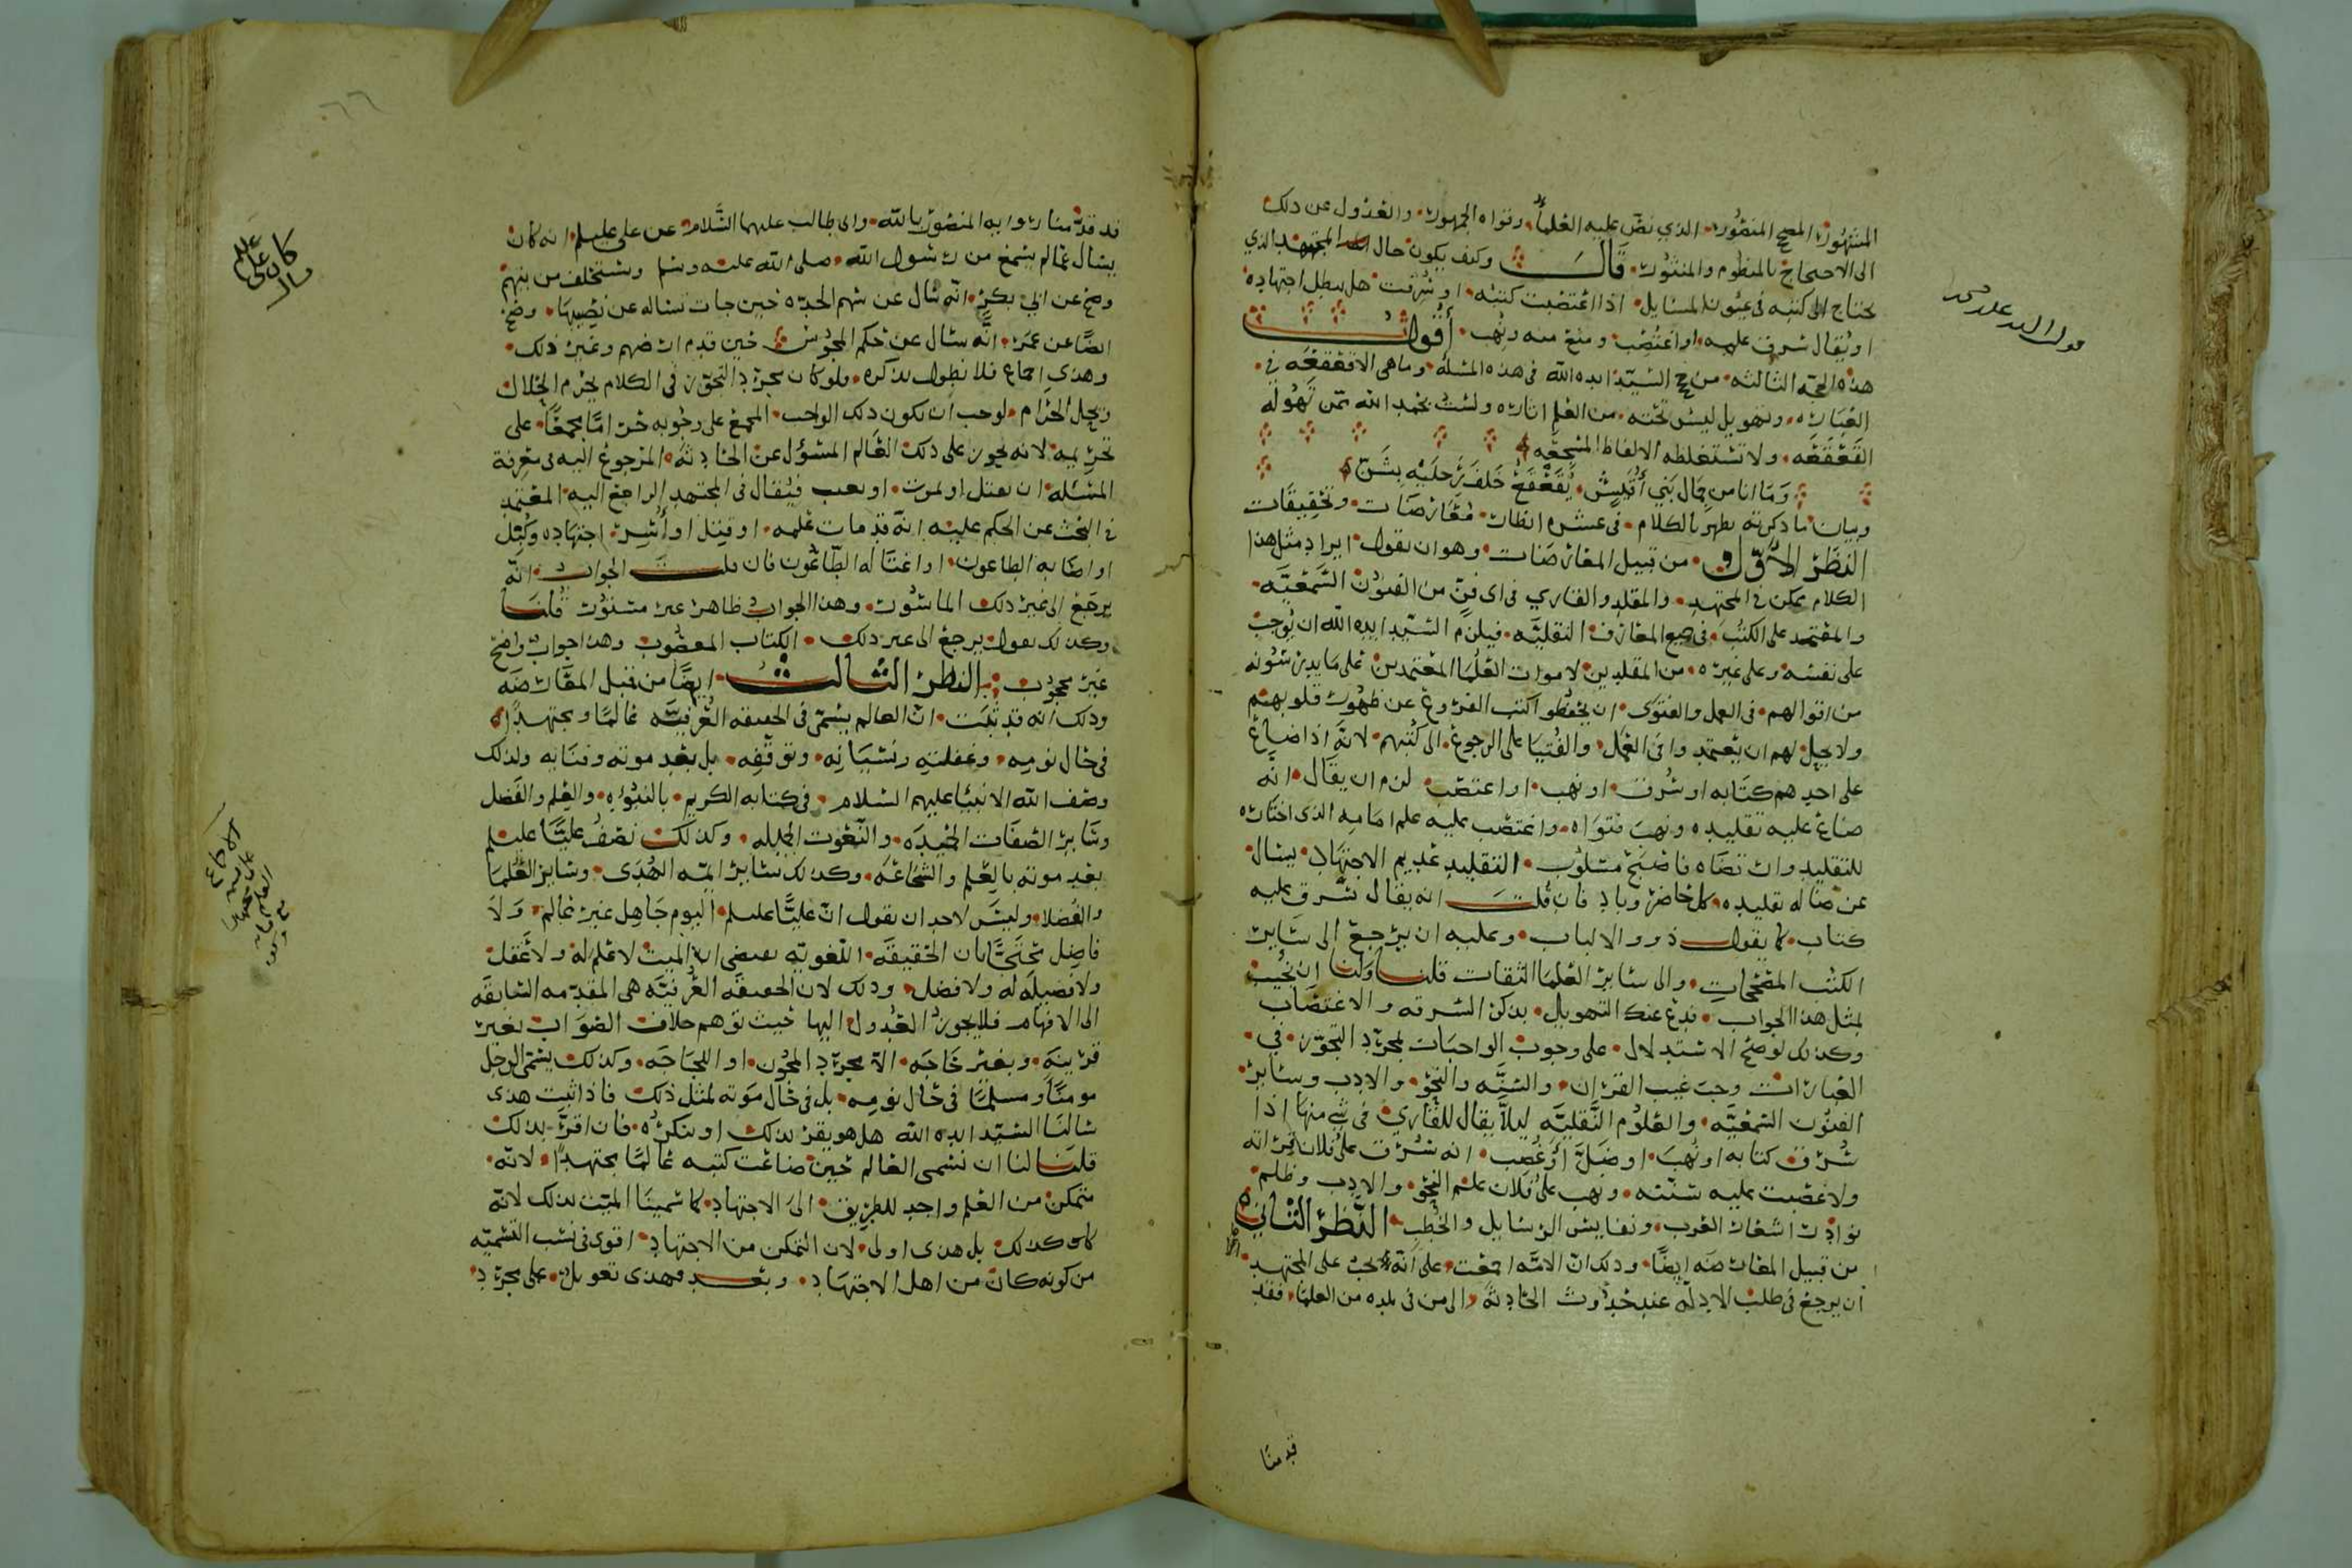 المشهور الصحيح المنصور الذي نص عليه العلماء ورواه الجمهور والعدول عن ذلك
الى الاحتجاج بالمنظوم والمنثور قال وكيف يكون حال المجتهد الذي
يحتاج الى كتبه في عيون المسايل اذا اغتصبت كتبه او سرقت هل يبطل اجتهاده
او يقال سرق علمه او اغتصب ومنع منه ونهب أقول
هذه الحجة الثالثة من حجج السيد ايده الله في هذه المسئلة وما هي الا قعقعه في
العباره وتهويل ليس تحته من العلم اثاره ولست بحمد الله ممن تهوله
القعقعه ولا تستغلطه الالفاظ المسجعه
وما انا من جمال بني أقيش يقعقع خلف رجليه بشن
وبيان ما ذكرته يظهر بالكلام في عشره انظار معارضات وتحقيقات
النظر الاول من قبيل المعارضات وهو ان نقول ايراد مثل هذا
الكلام ممكن في المجتهد والمقلد والقاري في اي فن من الفنون السمعيه
والمعتمد على الكتب في جميع المعارف النقليه فيلزم السيد ايده الله ان يوجب
على نفسه وعلى غيره من المقلدين لاموات العلما المعتمدين على ما يدرسونه
من اقوالهم في العمل والفتوى ان يحفظوا كتب الفروع عن ظهور قلوبهم
ولا يحل لهم ان يعتمدوا في العمل والفتيا على الرجوع الى كتبهم لانه اذا ضاع
على احدهم كتابه او سرق او نهب او اغتصب لزم ان يقال انه
ضاع عليه تقليده ونهب فتواه واغتصب عليه علم امامه الذي اختاره
للتقليد وارتضاه فاصبح مسلوب التقليد عديم الاجتهاد يسال
عن ضالة تقليده كل حاضر وباد فان قلت انه يقال سرق عليه
كتاب كما يقول ذوو الالباب وعليه ان يرجع الى ساير
الكتب المصححات والى ساير العلما الثقات قلنا ولنا ان نجيب
بمثل هذا الجواب فدع عنك التهويل بذكر السرقه والاغتصاب
وكذلك لو صح الاستدلال على وجوب الواجبات بمجرد التجوز في
العبارات وجب غيب القران والسنه والنحو والادب وساير
الفنون السمعيه والعلوم النقليه ليلا يقال للقاري في شي منها اذا
سرق كتابه او نهب او ضل او غصب انه سرق على فلان قراته
ولاغصبت عليه سنته ونهب على فلان علم النحو والادب وظلم
نوادر اشعار العرب ونفايس الرسايل والخطب النظر الثاني
من قبيل المعارضه ايضا وذلك ان الامه اجمعت على انه يجب على المجتهد
ان يرجع في طلب الادله عند حدوث الحادثة الى من في بلده من العلما فقد
قدمنا
قد قدمنا ما رواه المنصور بالله وابو طالب عليهما السلام عن علي عليلم انه كان
يسال عما لم يسمع من رسول الله صلى الله عليه وسلم ويستحلف من يتهم
وصح عن ابي بكر انه سال عن سهم الجده حين جات تساله عن نصيبها وصح
ايضا عن عمر انه سال عن حكم المجوس حين قدم ارضهم وغير ذلك
وهذي اجماع فلا نطول بذكره ولو كان مجرد التجوز في الكلام يحرم الحلال
ويحل الحرام لوجب ان يكون ذلك الواجب المجمع على وجوبه حراما مجمعا على
تحريمه لانه يجوز على ذلك العالم المسؤل عن الحادثه المرجوع اليه في معرفة
المسئله ان يقتل او يموت او فيقال في المجتهد الراجع اليه المعتمد
في البحث عن الحكم عليه انه قد مات علمه او قتل او أسر اجتهاده وكبل
او اصابه الطاعون او اغتاله الطاعون فان قلت الجواب انه
يرجع الى غير ذلك الماسور وهذا الجواب ظاهر غير مستور قلنا
وكذلك نقول يرجع الى غير ذلك الكتاب المغصوب وهذا جواب واضح
غير محجوب النظر الثالث ايضا من قبيل المعارضه
وذلك انه قد ثبت ان العالم يسمى في الحقيقه العرفيه عالما ومجتهدا
في حال نومه وغفلته ونسيانه وتوقفه بل بعد موته وفنايه ولذلك
وصف الله الانبيا عليهم السلام في كتابه الكريم بالنبوه والعلم والفضل
وساير الصفات الحميده والنعوت الجليله وكذلك نصف عليا عليلم
بعد موته بالعلم والشجاعه وكذلك ساير ايمة الهدى وساير العلما
والفضلا وليس لاحد ان يقول ان عليا عليلم اليوم جاهل غير عالم ولا
فاضل محتجا بان الحقيقه اللغويه تقتضي ان الميت لا علم له ولا عقل
ولا فضيلة له ولا فضل وذلك لان الحقيقه العرفيه هي المقدمه السابقه
الى الافهام فلا يجوز العدول اليها حيث توهم خلاف الصواب بغير
قرينه وبغير حاجه الا مجرد المجون او اللجاجه وكذلك يسمى الرجل
مومنا ومسلما في حال نومه بل في حال موته لمثل ذلك فاذا ثبت هذي
سالنا السيد ايده الله هل هو يقر بذلك او ينكره فان اقر بذلك
قلنا لنا ان نسمى العالم حين ضاعت كتبه عالما مجتهدا لانه
متمكن من العلم واجد للطريق الى الاجتهاد كما سمينا الميت بذلك لانه
كان كذلك بل هذي اولى لان التمكن من الاجتهاد اقوى في نسب التسميه
من كونه كان من اهل الاجتهاد وبعد فهذي تعويل على مجرد
كان علي